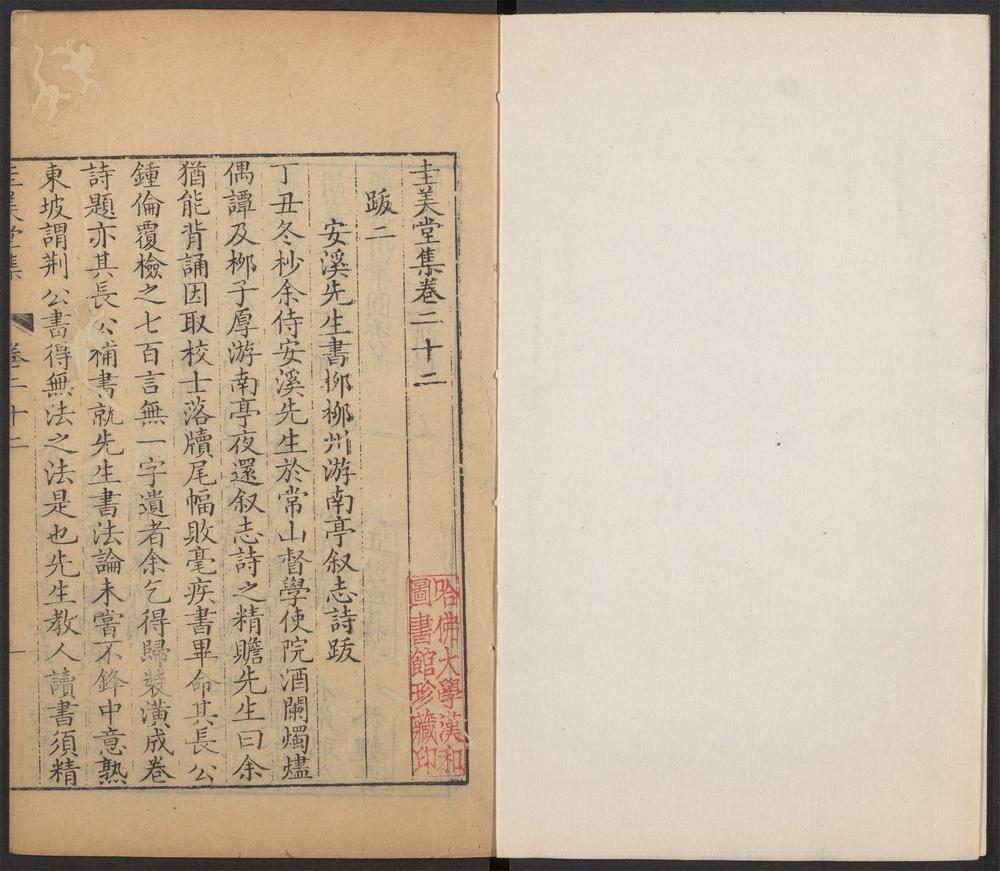 圭美堂集卷二十二
跋二
安溪先生書栁栁州游南亭叙志詩跋
丁丑冬杪余侍安溪先生於常山督學使院酒闌燭燼
偶譚及栁子厚游南亭夜還叙志詩之精贍先生曰余
猶能背誦因取校士落牘尾幅敗毫疾書畢命其長公
鍾倫覆檢之七百言無一字遺者余乞得歸裝潢成卷
詩題亦其長公補書就先生書法論未嘗不鋒中意熟
東坡謂荆公書得無法之法是也先生教人讀書須精
圭美堂集 卷二十二 一
哈佛大學漢和
圖書館珍藏印